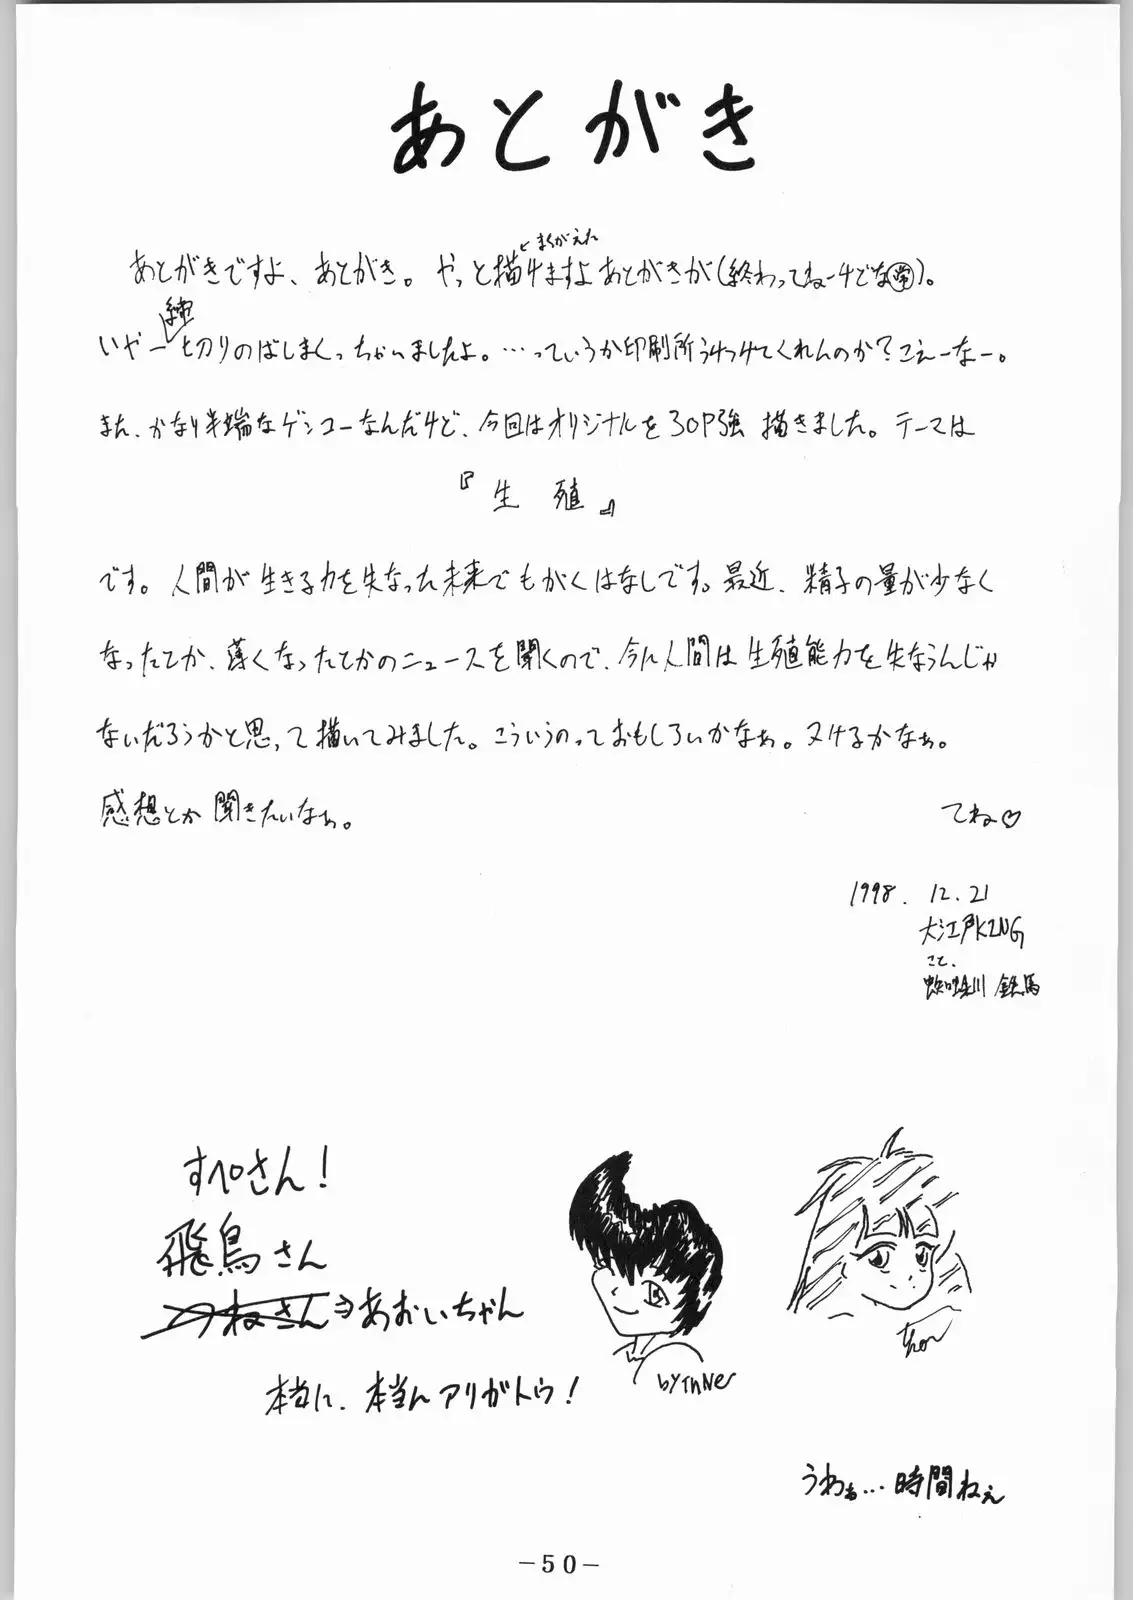 あとがき
まちがえた
あとがきですよ、あとがき。やっと描けますよあとがきが(終わってねーけどな).
いやー
締
切りのばしまくっちゃいましたよ。…っていうか印刷所うけつけてくれんのか?こえーなー。
また、かなり半端なゲンコーなんだけど、今回はオリジナルを30P強 描きました。テーマは
『生 殖』
です。人間が生きる力を失なった未来でもがくはなしです。最近、精子の量が少なく
なったとか、薄くなったとかのニュースを聞くので、今に人間は生殖能力を失なうんじゃ
ないだろうかと思って描いてみました。こういうのっておもしろいかなぁ。ヌけるかなぁ。
感想とか聞きたいなぁ。 てね♡
1998. 12. 21
大江戸KING
こと、
蜘蛛川 鉄馬
すぺさん!
飛鳥さん
つねさん⇒あおいちゃん
本当に、本当にアリガトウ!
by Inner
うわぁ…時間ねぇ
-50-